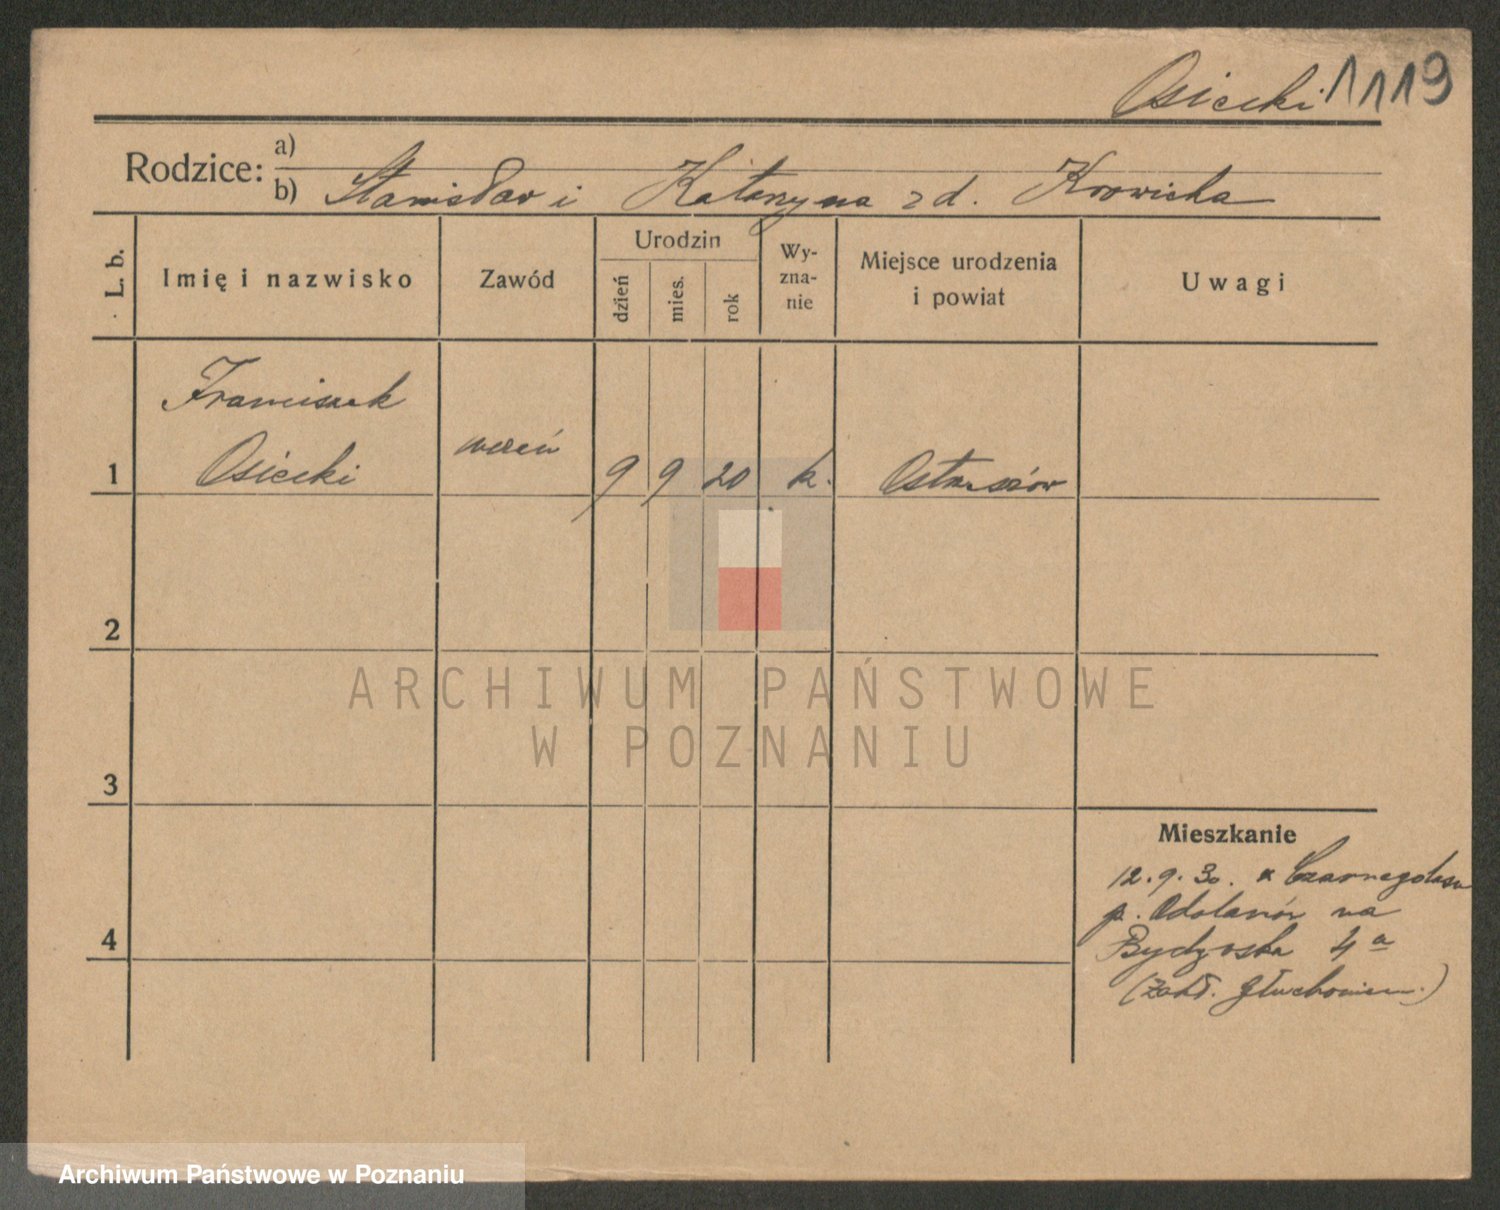 Osiecki 1119
Rodzice: a)
b) Stanisław i Katarzyna z d. Krowicka
L. b.
Imię i nazwisko
Zawód
Urodzin
dzień
mies.
rok
Wy-
zna-
nie
Miejsce urodzenia
i powiat
Uwagi
Franciszek
1 Osiecki uczeń 9 9 20 k. Ostrzeszów
2
3
4
ARCHIWUM PAŃSTWOWE
W POZNANIU
Mieszkanie
12.9.30. z Czarnegolasu
p. Odolanów na
Bydgoska 4a
(Zakł. Głuchoniem.)
Archiwum Państwowe w Poznaniu